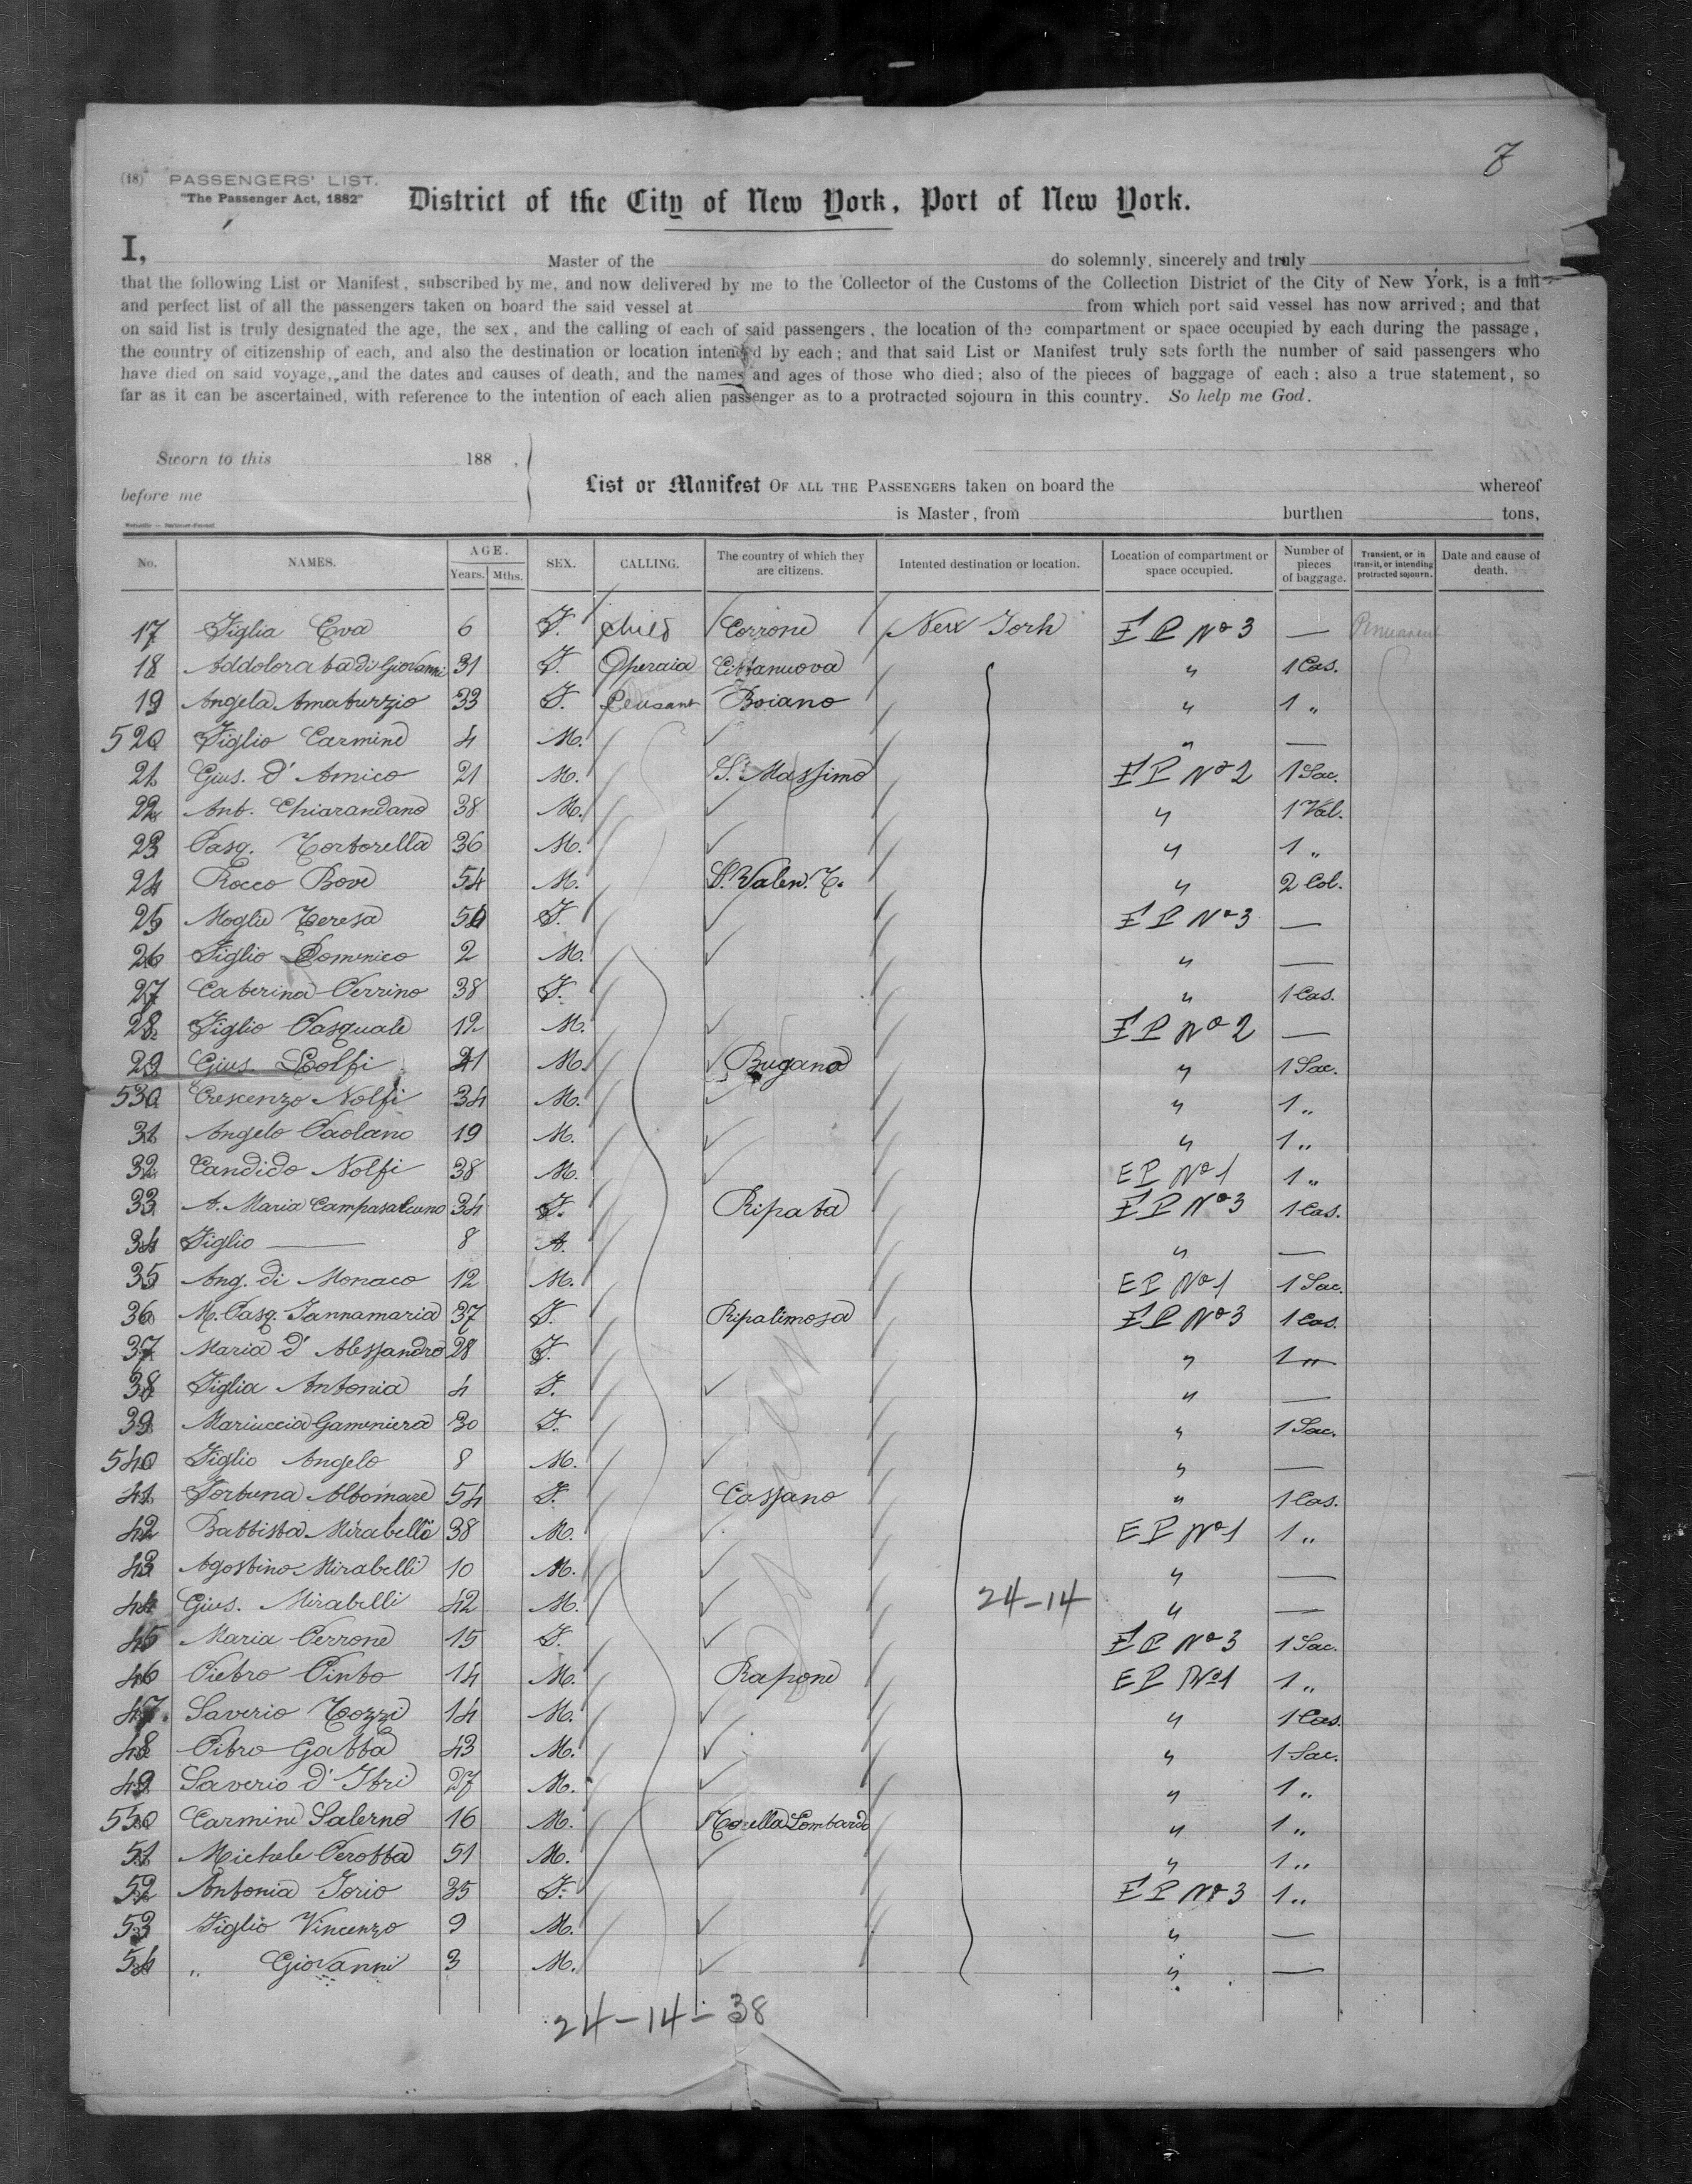 7
(18) PASSENGERS' LIST.
"The Passenger Act, 1882"
District of the City of New York, Port of New York.
I, Master of the do solemnly, sincerely and truly
that the following List or Manifest, subscribed by me, and now delivered by me to the Collector of the Customs of the Collection District of the City of New York, is a full
and perfect list of all the passengers taken on board the said vessel at from which port said vessel has now arrived; and that
on said list is truly designated the age, the sex, and the calling of each of said passengers, the location of the compartment or space occupied by each during the passage,
the country of citizenship of each, and also the destination or location intended by each; and that said List or Manifest truly sets forth the number of said passengers who
have died on said voyage, and the dates and causes of death, and the names and ages of those who died; also of the pieces of baggage of each; also a true statement, so
far as it can be ascertained, with reference to the intention of each alien passenger as to a protracted sojourn in this country. So help me God.
Sworn to this 188 ,
before me
List or Manifest OF ALL THE PASSENGERS taken on board the whereof
is Master, from burthen tons,
No. NAMES. AGE. Years. Mths. SEX. CALLING. The country of which they are citizens. Intented destination or location. Location of compartment or space occupied. Number of pieces of baggage. Transient, or in transit, or intending protracted sojourn. Date and cause of death.
17 Figlia Eva 6 F. Child Corrone New York E P No 3 —
18 Addolorata di Giovanni 31 F. Operaia Cittanuova " 1 Cas.
19 Angela Amaturzio 33 F. Peasant Boiano " 1 "
520 Figlio Carmine 4 M. " —
21 Gius. d' Amico 21 M. S. Massimo E P No 2 1 Sac.
22 Ant. Chiarandano 38 M. " 1 Val.
23 Pasq. Tortorella 36 M. " 1 "
24 Rocco Bove 54 M. S. Valen. T. " 2 Col.
25 Moglie Teresa F. E P No 3 —
26 Figlio Domenico 2 M. " —
27 Caterina Perrino 38 F. " 1 Cas.
28 Figlio Pasquale 12 M. E P No 2 —
29 Gius. M. Bugano " 1 Sac.
530 Crescenzo Nolfi 34 M. " 1 "
31 Angelo Paolano 19 M. " 1 "
32 Candido Nolfi 38 M. E P No 1 1 "
33 A. Maria 34 F. Ripata E P No 3 1 Cas.
34 Figlio — 8 " —
35 Ang. di Monaco 12 M. E P No 1 1 Sac.
36 M. Pasq. Iannamaria 37 F. Ripalimosa E P No 3 1 Cas.
37 Maria d' Alessandro 28 F. " 1 "
38 Figlia Antonia 4 F. " —
39 Mariuccia Gameniera 30 F. " 1 Sac.
540 Figlio Angelo 8 M. " —
41 Fortuna Altomare 54 F. Cassano " 1 Cas.
42 Battista Mirabelli 38 M. E P No 1 1 "
43 Agostino Mirabelli 10 M. " —
44 Gius. Mirabelli 42 M. 24-14 " —
45 Maria Perrone 15 F. E P No 3 1 Sac.
46 Pietro Pinto 14 M. Rapone E P No 1 1 "
47 Saverio Tozzi 14 M. " 1 Cas.
48 Pitro Gatta 43 M. " 1 Sac.
49 Saverio d' Itri 27 M. " 1 "
550 Carmine Salerno 16 M. Morella Lombardo " 1 "
51 Michele Perotta 51 M. " 1 "
52 Antonia Iorio 35 F. E P No 3 1 "
53 Figlio Vincenzo 9 M. " —
54 " Giovanni 3 M. " —
24-14-38